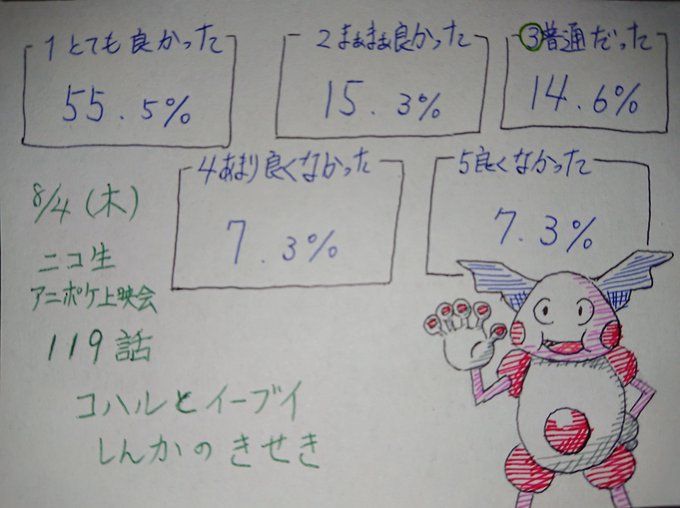 1とても良かった
55.5%
2まぁまぁ良かった
15.3%
③普通だった
14.6%
4あまり良くなかった
7.3%
5良くなかった
7.3%
8/4(木)
ニコ生
アニポケ上映会
119話
コハルとイーブイ
しんかのきせき